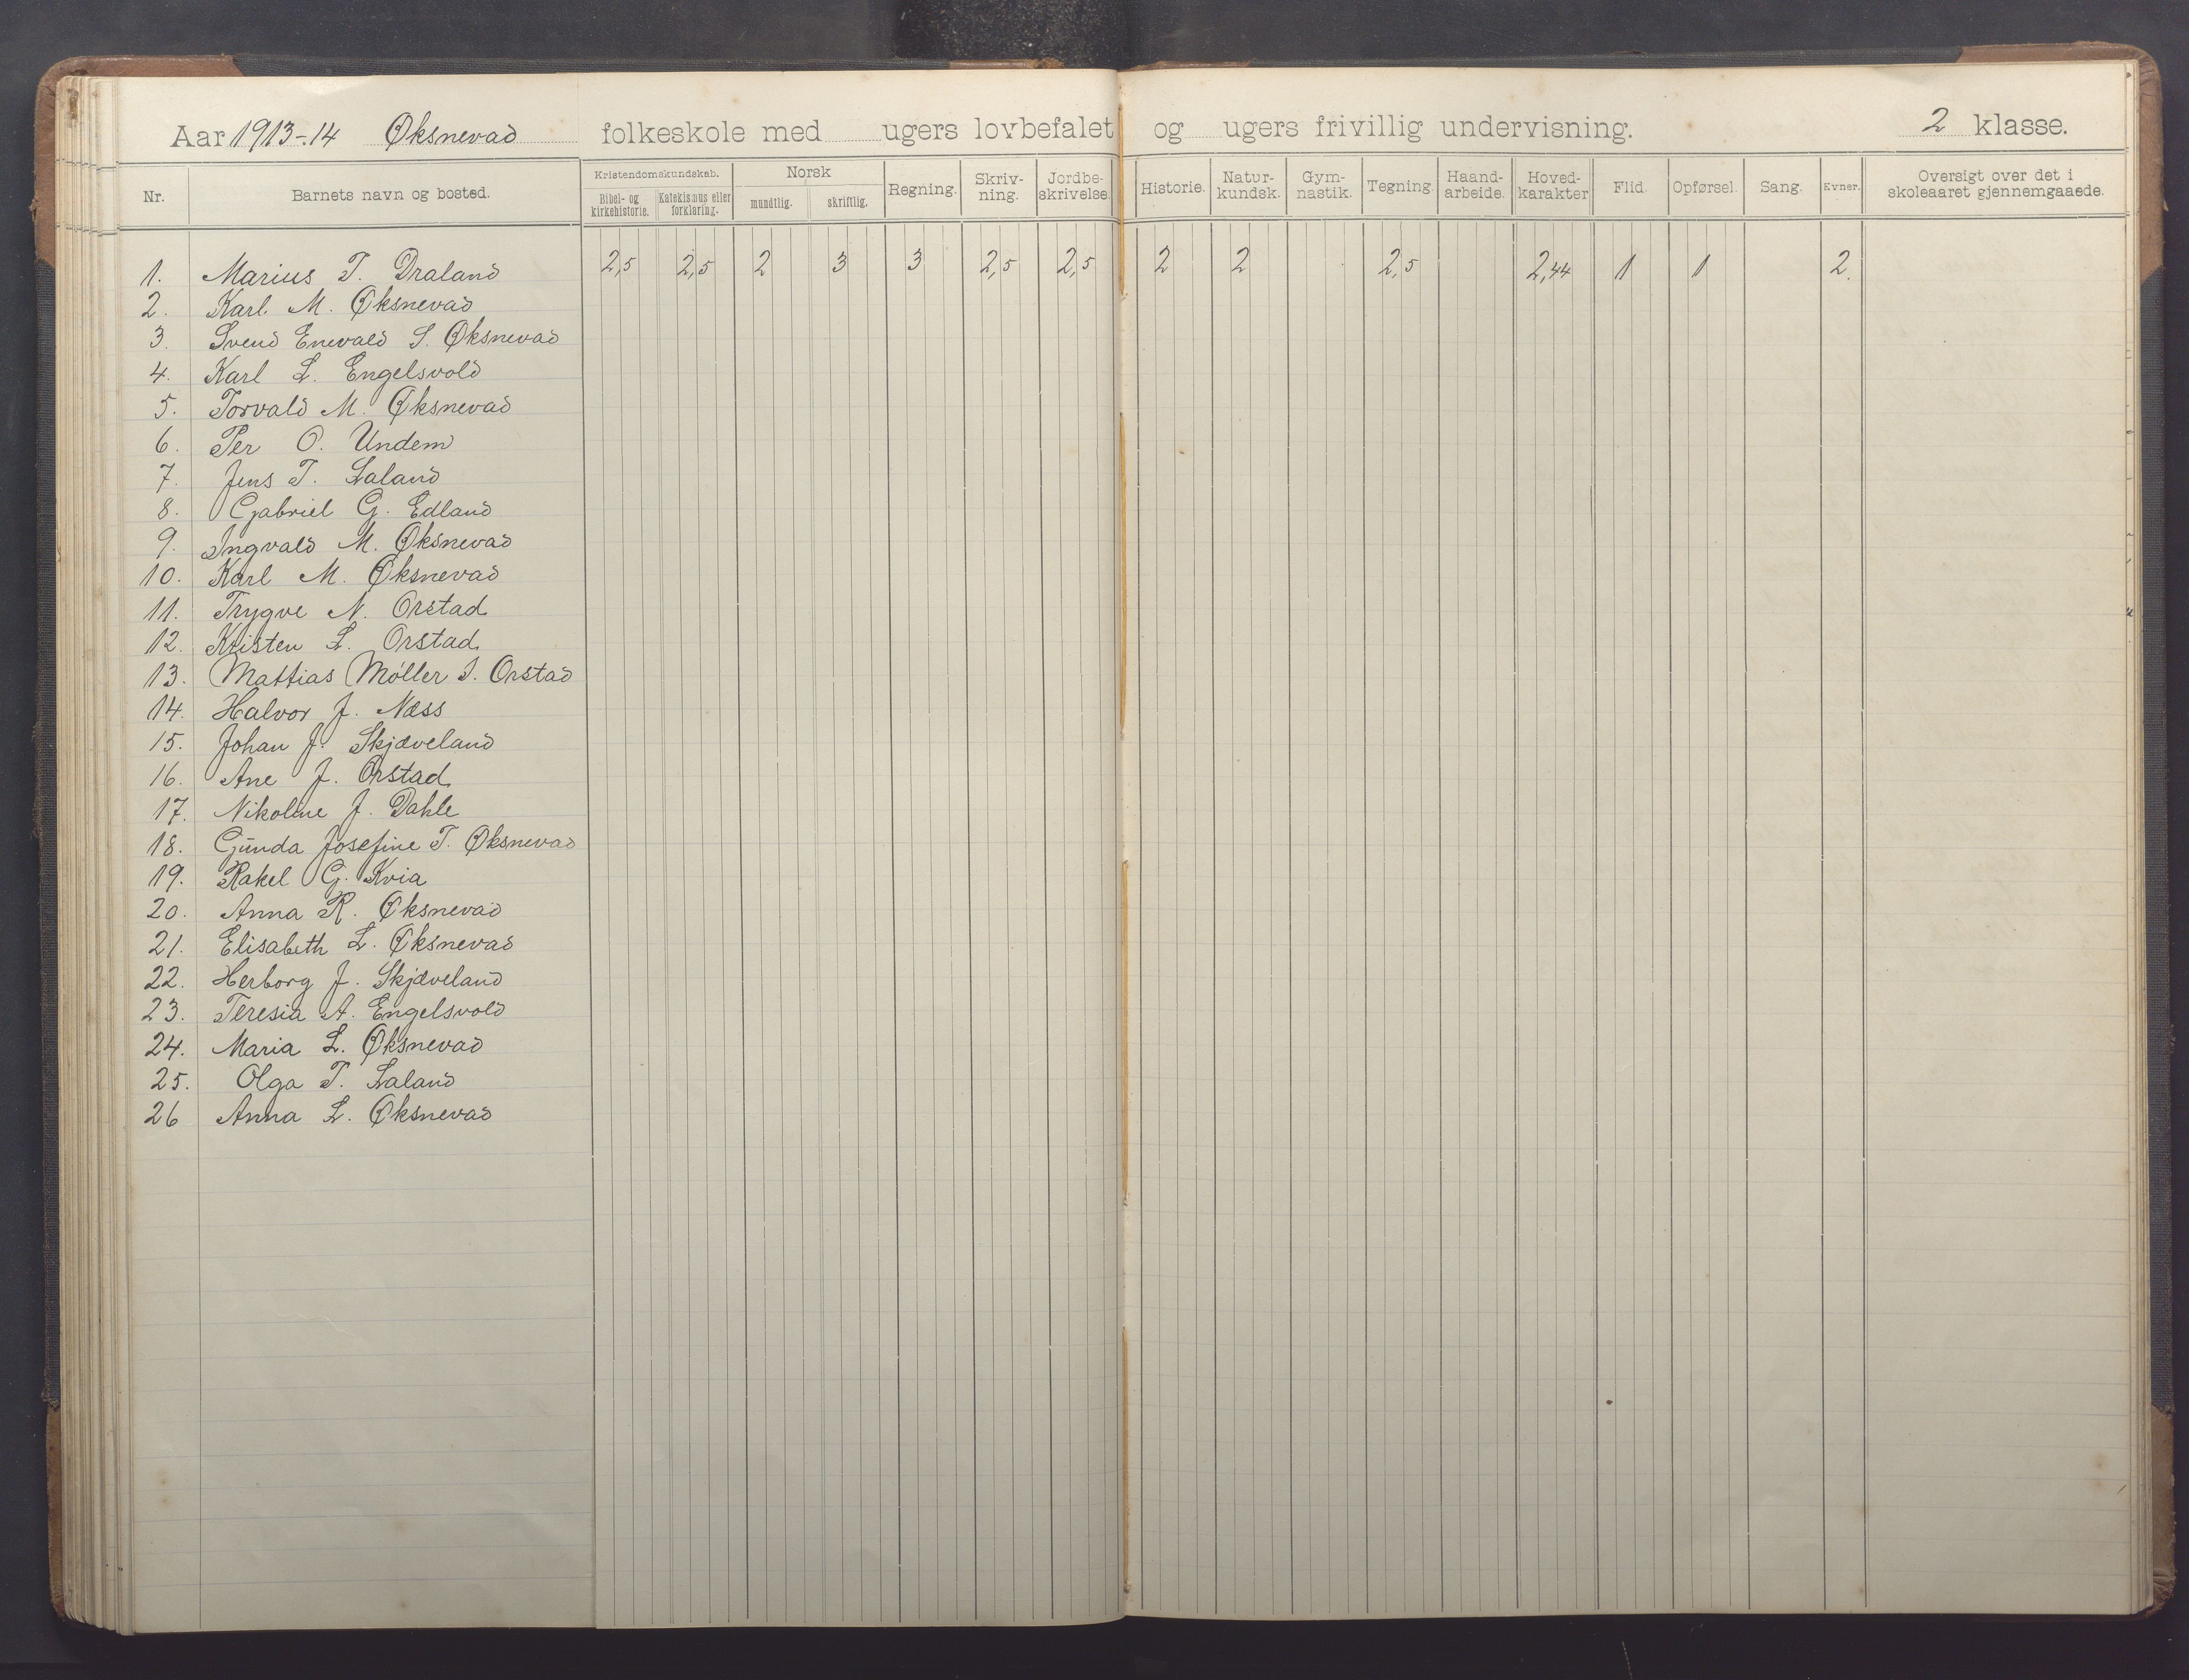 Aar 1913-14 Øksnevad folkeskole med ugers lovbefalet og ugers frivillig undervisning. 2 klasse.
Nr. Barnets navn og bosted. Kristendomskundskab. Bibel- og kirkehistorie. Katekismus eller forklaring. Norsk mundtlig. skriftlig. Regning. Skriv-ning. Jordbe-skrivelse. Historie. Natur-kundsk. Gym-nastik. Tegning. Haand-arbeide. Hoved-karakter Flid. Opførsel. Sang. Evner. Oversigt over det i skoleaaret gjennemgaaede.
1. Marius T. Draland 2,5 2,5 2 3 3 2,5 2,5 2 2 2,5 2,44 1 1 2.
2. Karl M. Øksnevad
3. Svend Enevald S. Øksnevad
4. Karl L. Engelsvold
5. Torvald M. Øksnevad
6. Per O. Undem
7. Jens T. Laland
8. Gabriel G. Edland
9. Ingvald M. Øksnevad
10. Karl M. Øksnevad
11. Trygve N. Orstad
12. Kristen L. Orstad
13. Mattias Møller I. Orstad
14. Halvor J. Næss
15. Johan J. Skjæveland
16. Ane J. Orstad
17. Nikoline J. Dahle
18. Gunda Josefine T. Øksnevad
19. Rakel G. Kvia
20. Anna R. Øksnevad
21. Elisabeth L. Øksnevad
22. Herborg J. Skjæveland
23. Teresia A. Engelsvold
24. Maria L. Øksnevad
25. Olga T. Laland
26 Anna L. Øksnevad